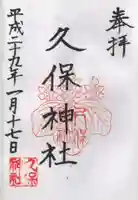 奉拝
久保神社
平成二十九年一月十七日